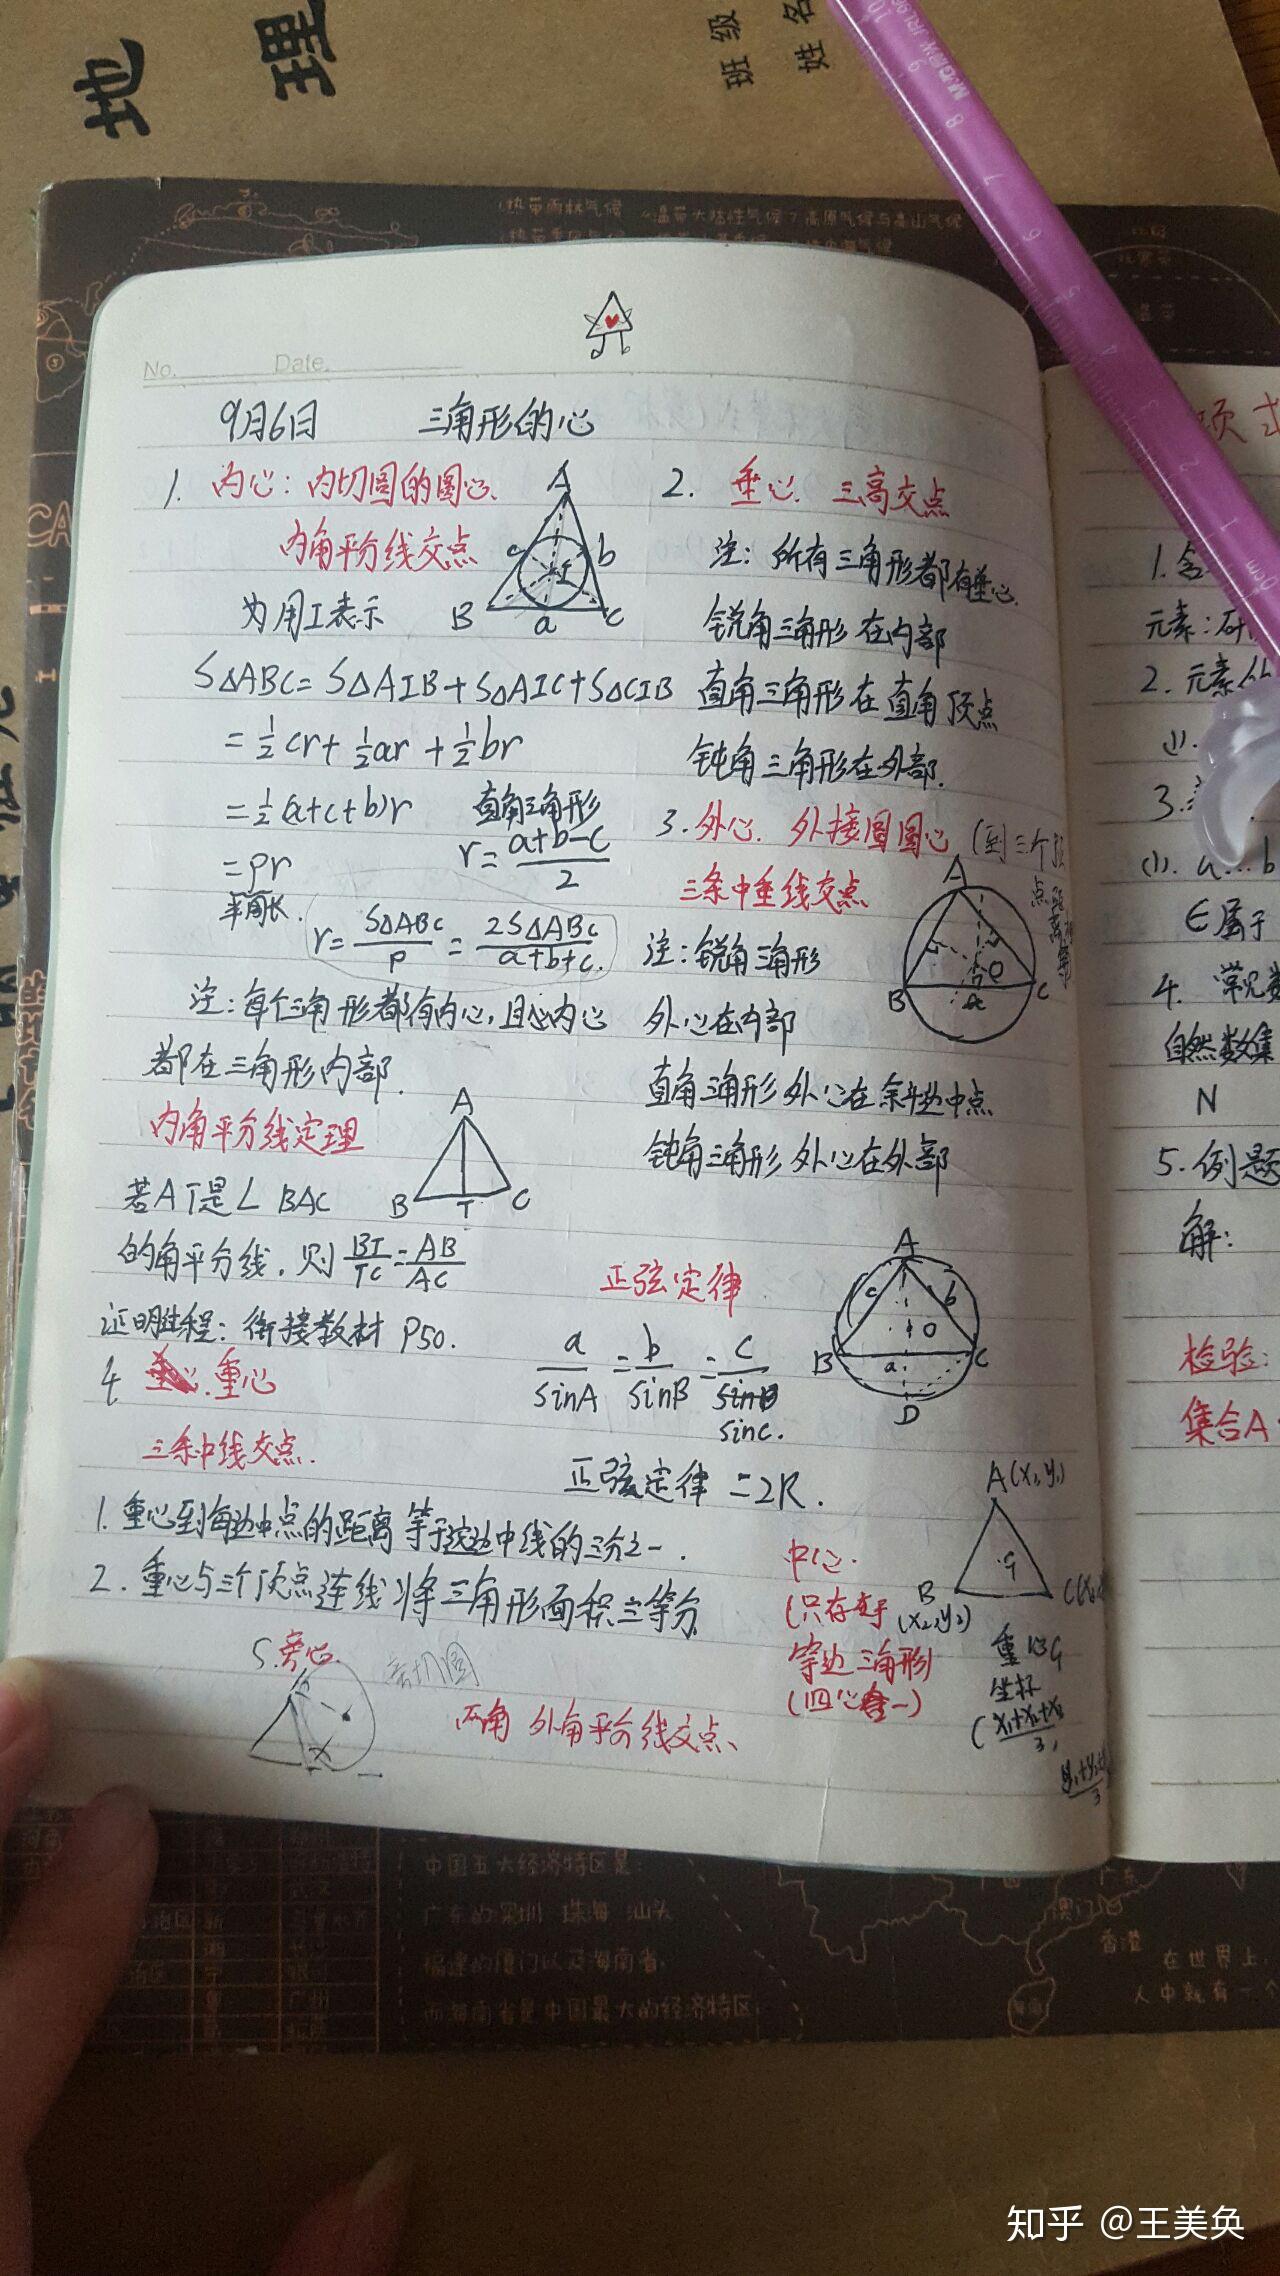 地 理
班级
姓名
热带雨林气候 温带大陆性气候 7高原气候与高山气候
No. Date.
9月6日 三角形的心
1. 内心：内切圆的圆心.
内角平分线交点
为用I表示
A
c b
I
B a C
S△ABC=S△AIB+S△AIC+S△CIB
=½cr+½ar+½br
=½(a+c+b)r
=pr
半周长.
直角三角形
r=(a+b-c)/2
r=S△ABC/p=2S△ABC/(a+b+c).
注：每个三角形都有内心，且内心
都在三角形内部.
内角平分线定理
A
B T C
若AT是∠BAC
的角平分线.则BT/TC=AB/AC
证明过程：衔接教材 P50.
2. 垂心. 三高交点
注：所有三角形都有垂心.
锐角三角形在内部
直角三角形在直角顶点
钝角三角形在外部.
3. 外心. 外接圆圆心
(到三个顶
点距
离相
等
三条中垂线交点
A
O
B a C
注：锐角三角形
外心在内部
直角三角形外心在斜边中点
钝角三角形外心在外部
正弦定律
a/sinA=b/sinB=c/sinC.
A
c b
O
B a C
D
正弦定律=2R.
4 重心
三条中线交点.
1. 重心到每边中点的距离等于这边中线的三分之一.
2. 重心与三个顶点连线将三角形面积三等分
5.旁心.
旁切圆
两角外角平分线交点、
中心.
(只存在于
等边三角形)
(四心合一)
A(x₁,y₁)
G
B C
(x₂,y₂)
重心G
坐标
(x₁+x₂+x₃/3,
y₁+y₂+
3
1.含
元素：研
2.元素的
(1).
3.
(1). a...b
∈属于
4. 常见数
自然数集
N
5.例题
解：
检验：
集合A
中国五大经济特区是：
广东的深圳 珠海 汕头
福建的厦门以及海南省.
而海南省是中国最大的经济特区.
广东
澳门
香港
海南
在世界上
人中就有一个
知乎 @王美奂